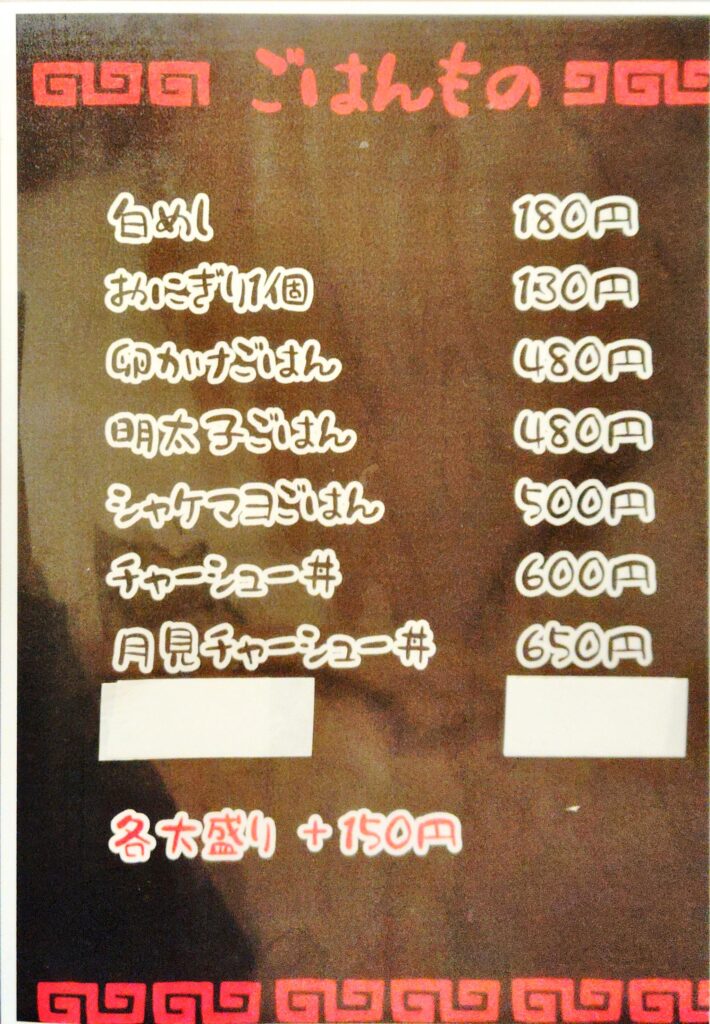 ごはんもの
白めし 180円
おにぎり1個 130円
卵かけごはん 480円
明太子ごはん 480円
シャケマヨごはん 500円
チャーシュー丼 600円
月見チャーシュー丼 650円
各大盛り +150円